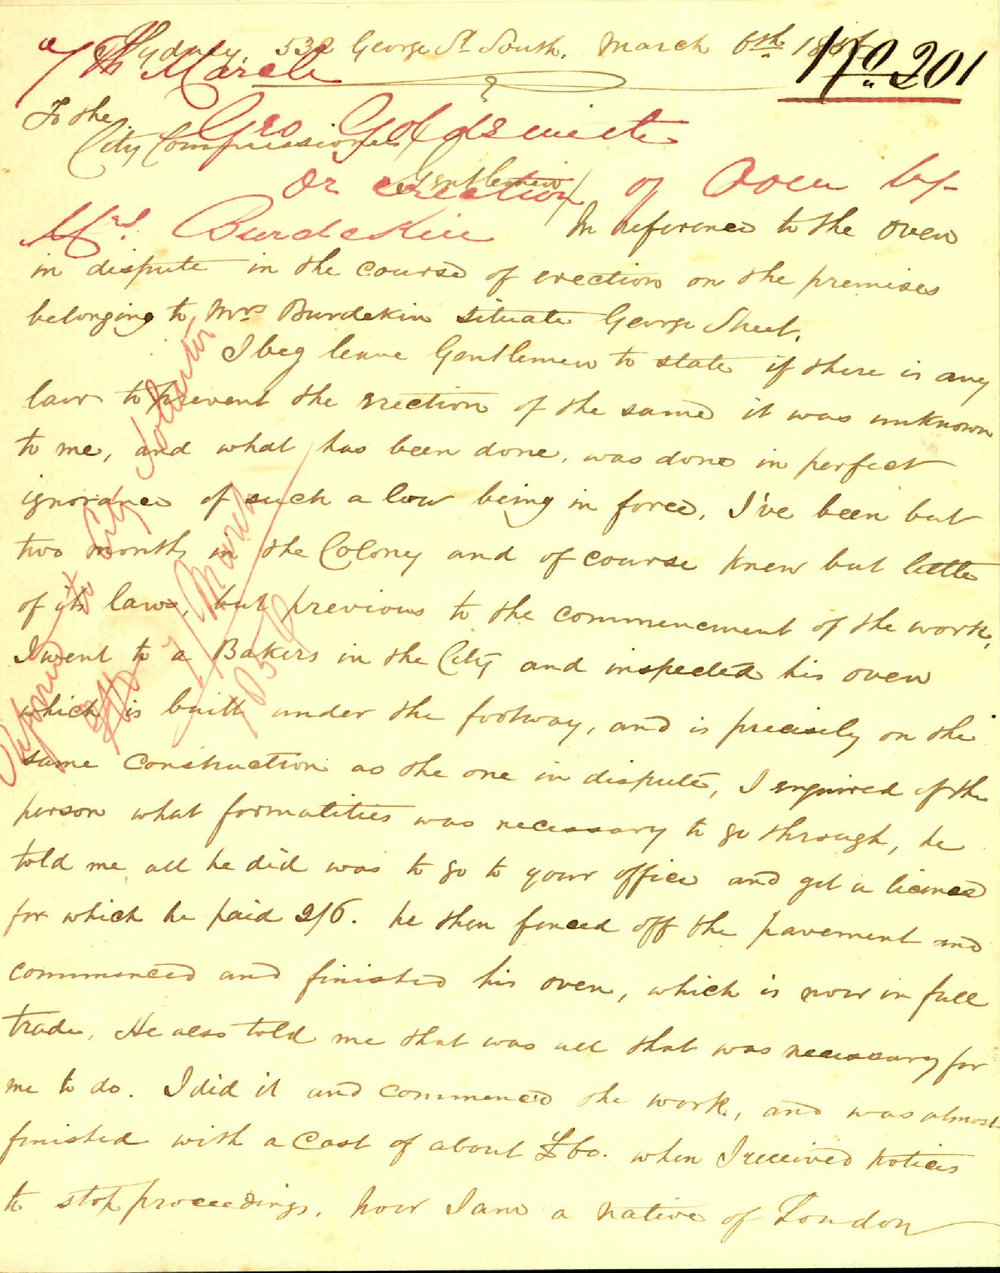 Sydney, 532 George St South, March 6th
No 201
7th March
To the
City Commissioners
Geo Goldsmith
Gentlemen
or erection of Oven by
Mrs Burdekin
In reference to the oven
in dispute in the course of erection on the premises
belonging to Mrs Burdekin situate George Street.
I beg leave Gentlemen to state if there is any
law to prevent the erection of the same it was unknown
to me, and what has been done, was done in perfect
ignorance of such a law being in force, I've been but
two months in the Colony and of course knew but little
of its laws, but previous to the commencement of the work,
I went to a Bakers in the City and inspected his oven
which is built under the footway, and is precisely on the
same construction as the one in dispute, I enquired of the
person what formalities was necessary to go through, he
told me all he did was to go to your office and get a licence
for which he paid 2/6. he then fenced off the pavement and
commenced and finished his oven, which is now in full
trade. He also told me that was all that was necessary for
me to do. I did it and commenced the work, and was almost
finished with a cost of about £60. when I received notices
to stop proceedings, now I am a native of London
Referred to City Solicitor
7/March